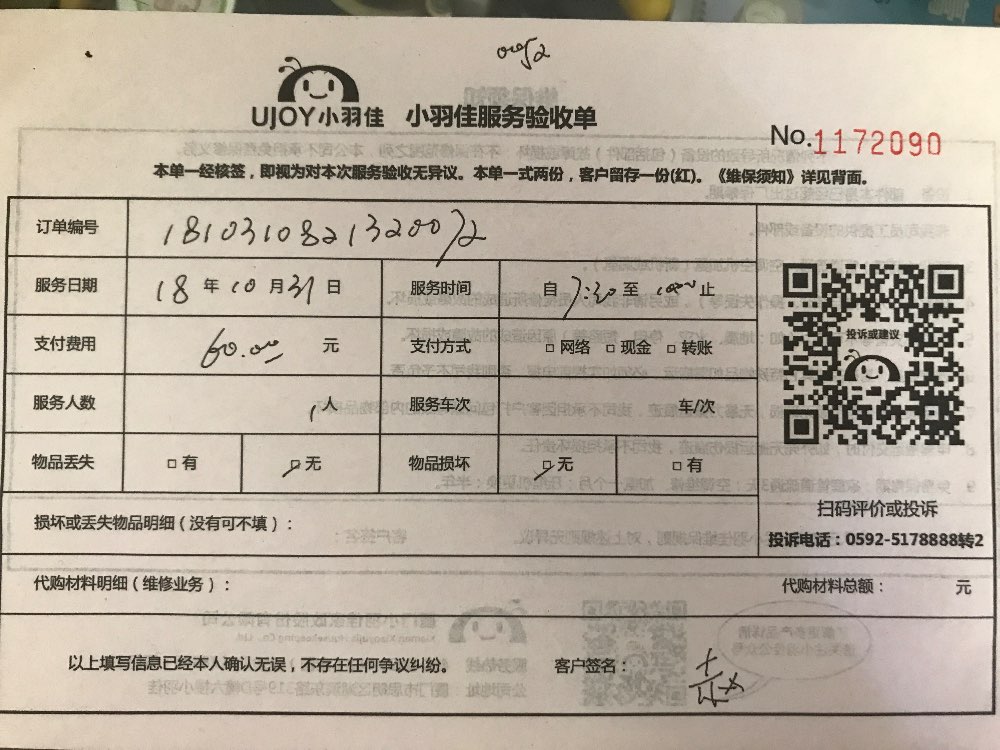 UJOY小羽佳 小羽佳服务验收单
No.1172090
本单一经核签，即视为对本次服务验收无异议。本单一式两份，客户留存一份(红)。《维保须知》详见背面。
订单编号 1810310821320072
服务日期 18 年 10 月 31 日 服务时间 自 7:30 至 止
支付费用 60.00 元 支付方式 □ 网络 □ 现金 □ 转账
服务人数 人 服务车次 车/次
物品丢失 □ 有 □ 无 物品损坏 □ 无 □ 有
投诉或建议
扫码评价或投诉
投诉电话：0592-5178888转2
损坏或丢失物品明细（没有可不填）：
代购材料明细（维修业务）： 代购材料总额： 元
以上填写信息已经本人确认无误，不存在任何争议纠纷。 客户签名：